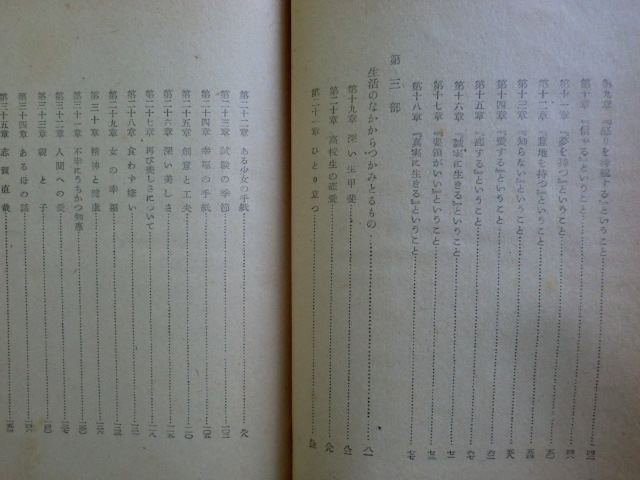 第九章 『怒りを考慮する』ということ
第十章 『信ずる』ということ
第十一章 『夢を持つ』ということ
第十二章 『意地を持つ』ということ
第十三章 『知らない』ということ
第十四章 『愛する』ということ
第十五章 『恋する』ということ
第十六章 『誠実に生きる』ということ
第十七章 『要領がいい』ということ
第十八章 『真実に生きる』ということ
第三部
生活のなかからつかみとるもの
第十九章 深い生甲斐
第二十章 高校生の恋愛
第二十一章 ひとり立つ
第二十二章 ある少女の手紙
第二十三章 試験の季節
第二十四章 幸福の手紙
第二十五章 創意と工夫
第二十六章 深い美しさ
第二十七章 再び美しさについて
第二十八章 食わず嫌い
第二十九章 女の幸福
第三十章 精神と健康
第三十一章 不幸にうちかつ知恵
第三十二章 人間への愛
第三十三章 親と子
第三十四章 ある母の話
第三十五章 志賀直哉